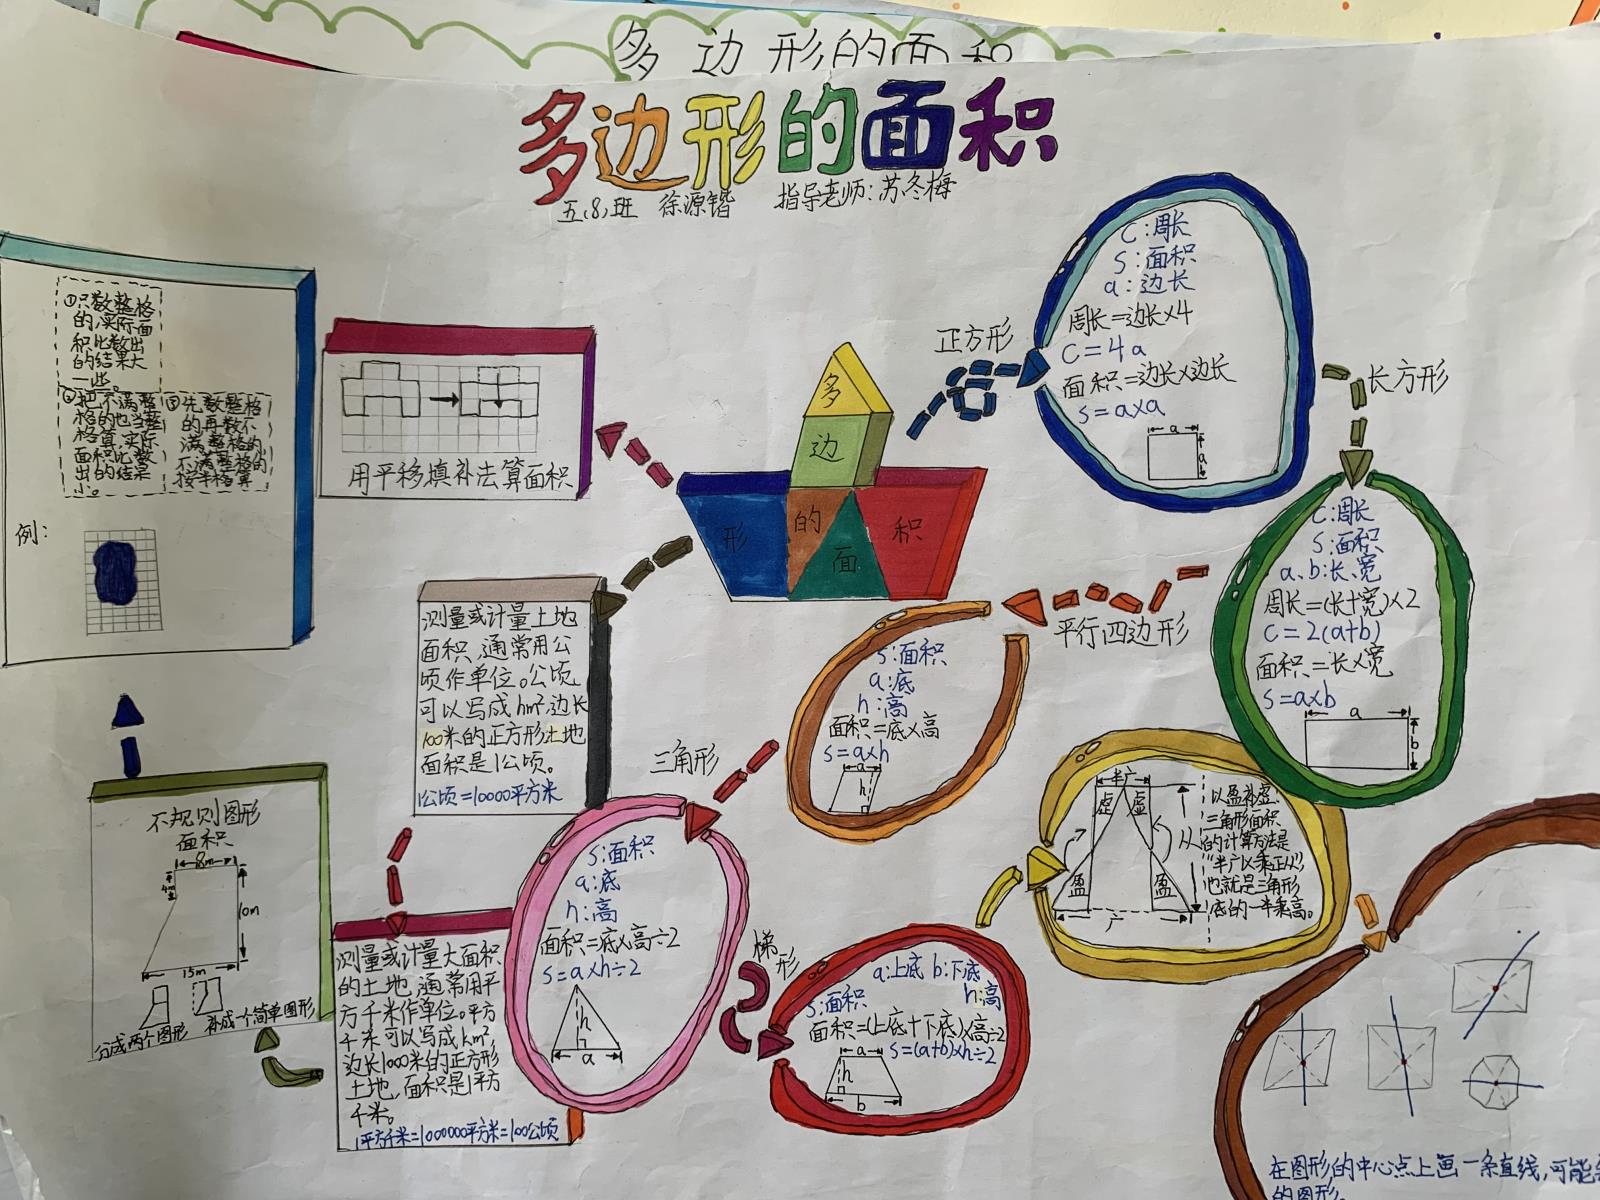 多边形的面积
多边形的面积
五(8)班 徐源锴 指导老师:苏冬梅
①只数整格
的,实际面
积比数出
的结果大
一些。
②把不满整
格的也当整
格算,实际
面积比数
出的结果
小。
③先数整格
的再数不
满整格的,
不满整格的
按半格算
例:
用平移填补法算面积
多
边
形
的
面
积
正方形
C:周长
S:面积
a:边长
周长=边长×4
C=4a
面积=边长×边长
S=a×a
a
a
长方形
C:周长
S:面积
a、b:长、宽
周长=(长+宽)×2
C=2(a+b)
面积=长×宽
S=a×b
a
b
平行四边形
S:面积
a:底
h:高
面积=底×高
S=a×h
a
h
测量或计量土地
面积,通常用公
顷作单位。公顷
可以写成hm²,边长
100米的正方形土地
面积是1公顷。
1公顷=10000平方米
三角形
S:面积
a:底
h:高
面积=底×高÷2
S=a×h÷2
h
a
梯形
a:上底 b:下底
S:面积 h:高
面积=(上底+下底)×高÷2
S=(a+b)×h÷2
a
h
b
半广
虚 虚
盈 盈
从
广
以盈补虚:
三角形面积
的计算方法是
“半广以乘正从”,
也就是三角形
底的一半乘高。
不规则图形
面积
8m
4m
10m
15m
分成两个图形
补成一个简单图形
测量或计量大面积
的土地,通常用平
方千米作单位。平方
千米可以写成km²,
边长1000米的正方形
土地,面积是1平方
千米。
1平方千米=1000000平方米=100公顷
在图形的中心点上画一条直线,可能
的图形。